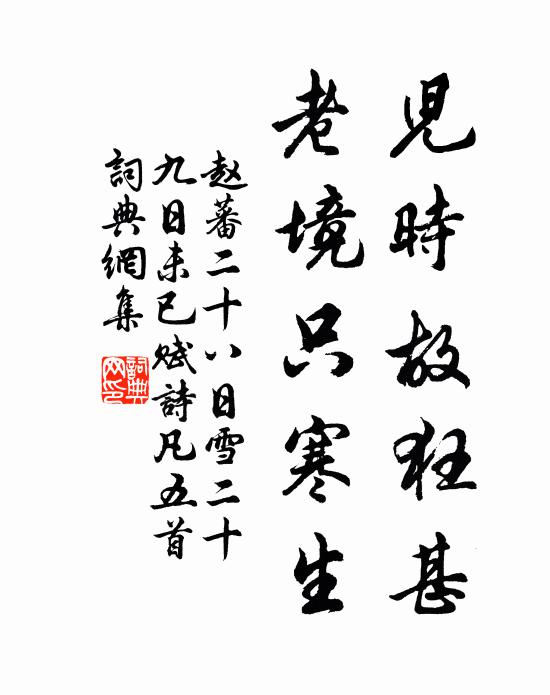 兒時故狂甚
老境只寒生
赵蕃二十八日雪二十
九日未已赋詩凡五首
詞典網集
詞典
网印